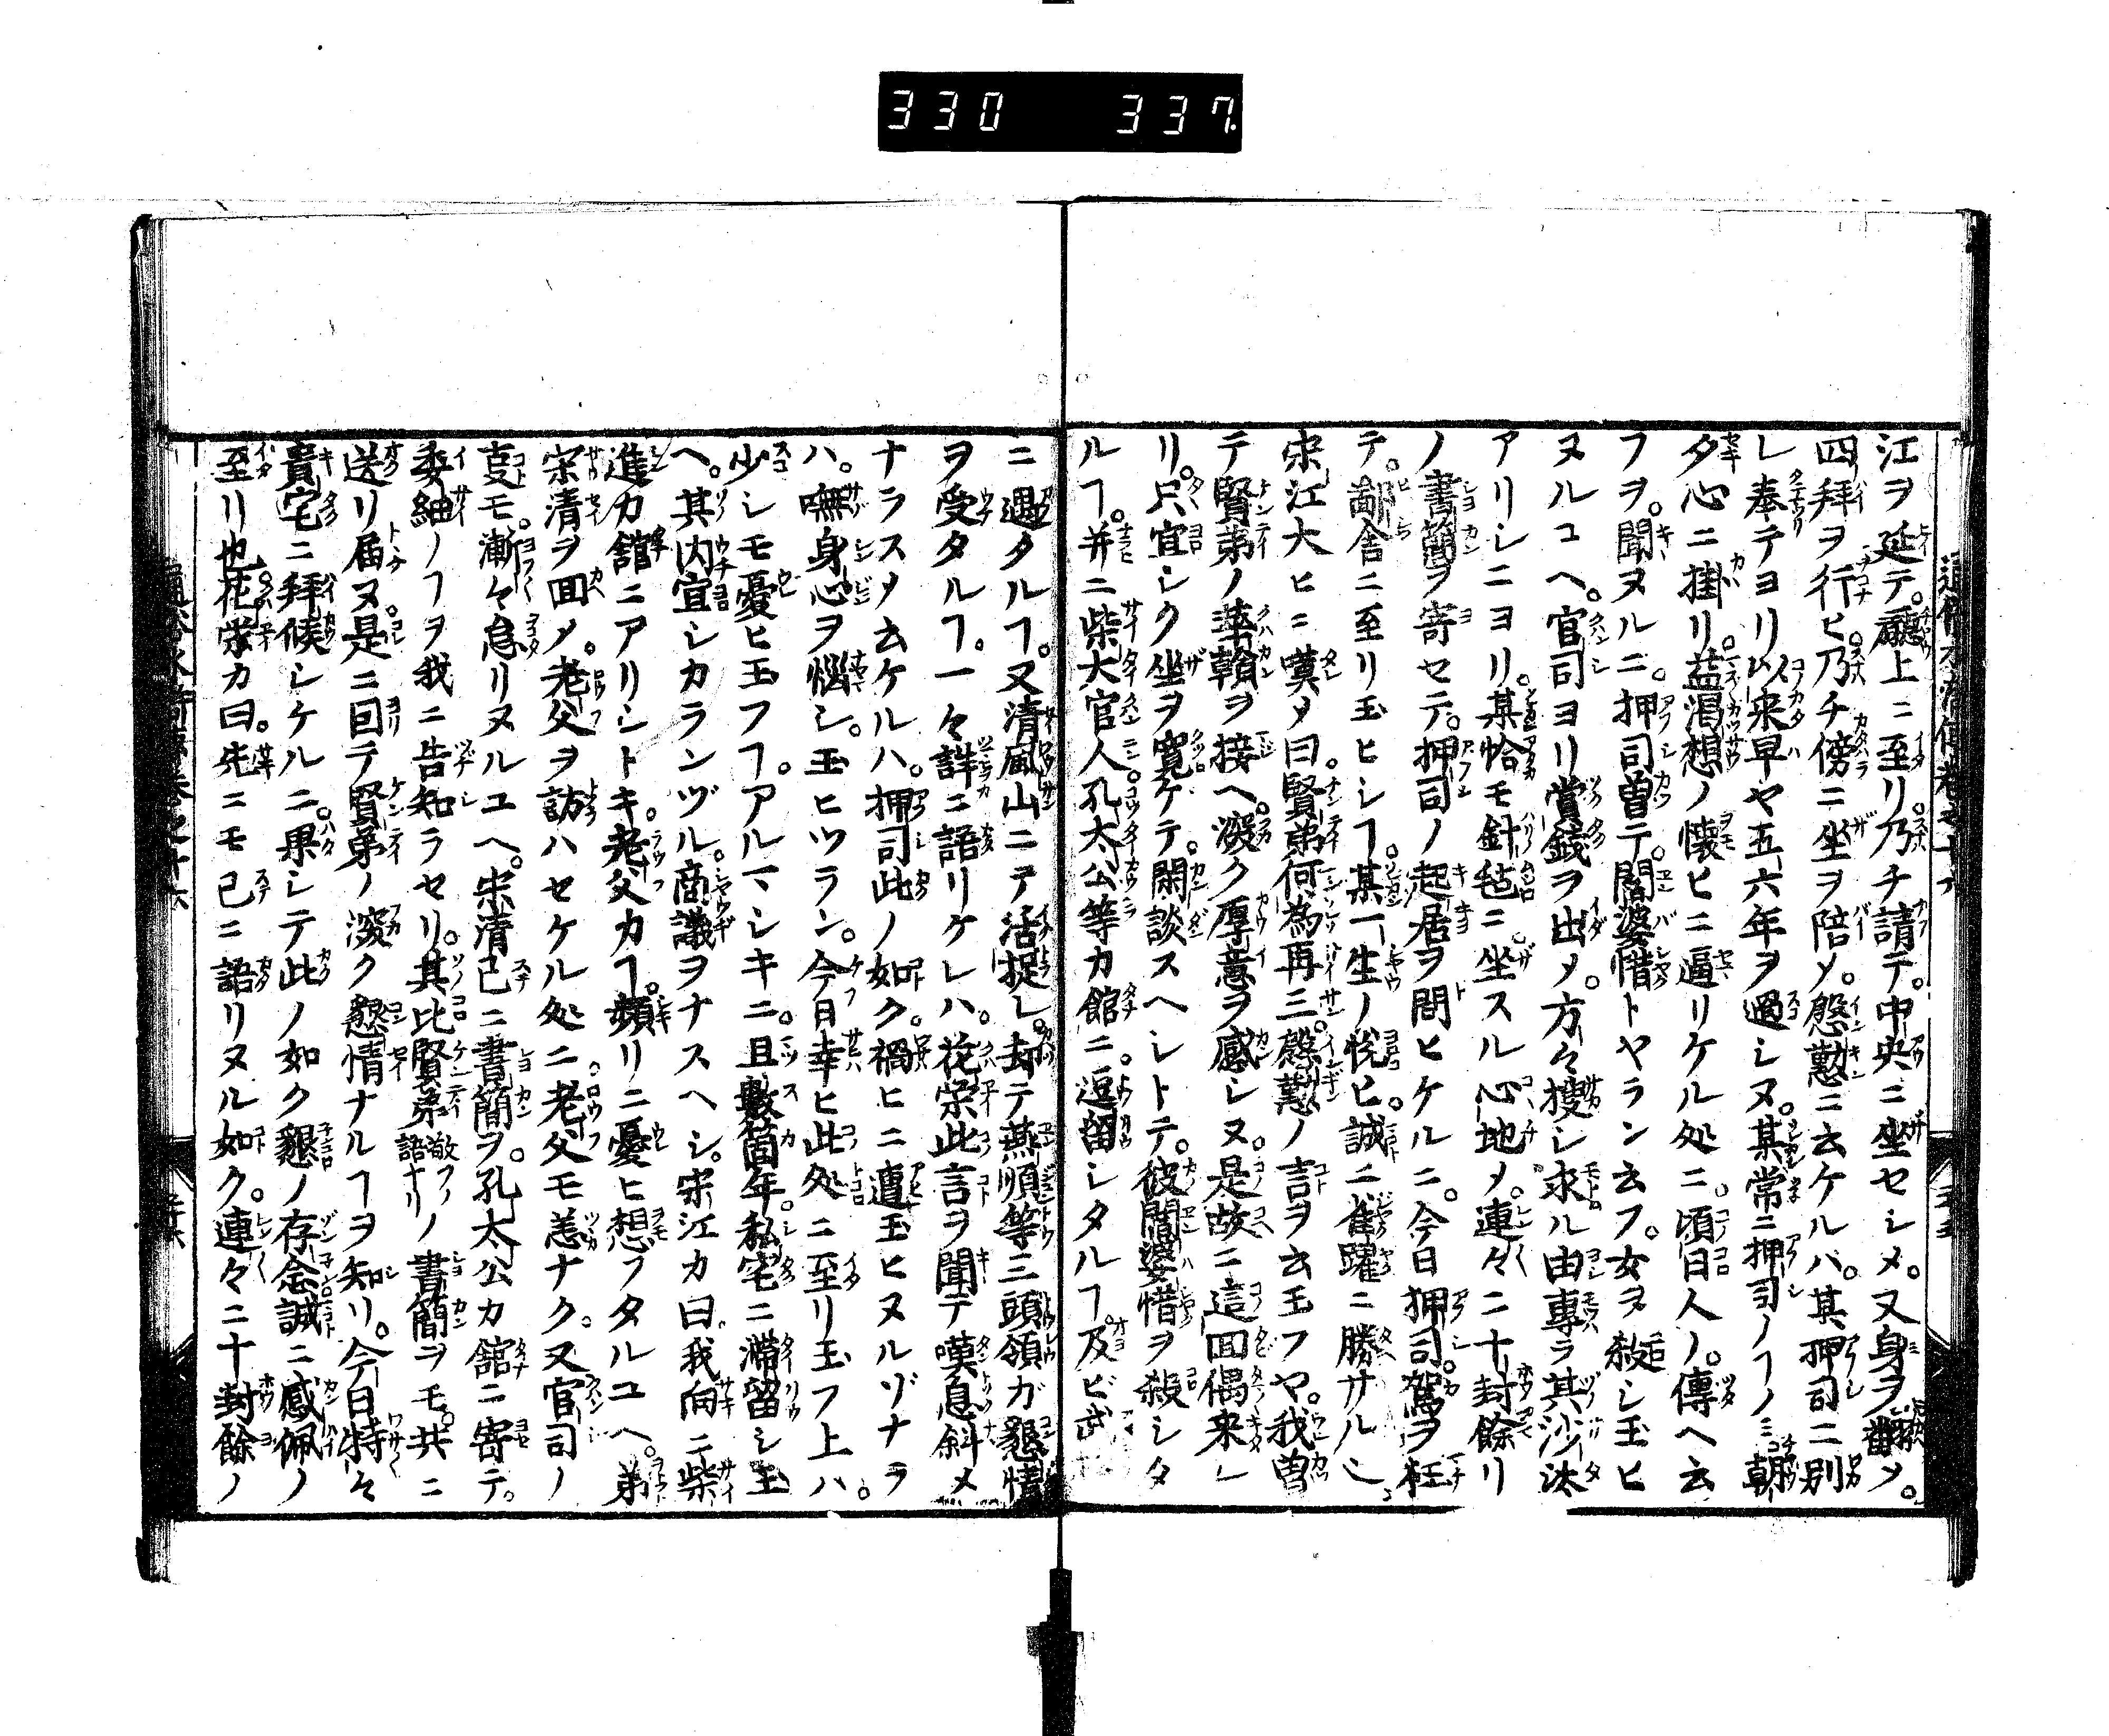 330 337
江ヲ延テ。廳上ニ至リ。乃チ請テ。中央ニ坐セシメ。又身ヲ翻メ。
四拜ヲ行ヒ。乃チ傍ニ坐ヲ陪メ。慇懃ニ云ケルバ。其押司ニ別
レ奉テヨリ以来。早ヤ五六年ヲ過シヌ。某常ニ押司ノヿノミ朝
タ心ニ掛リ。益渇想ノ懐ヒニ逼リケル処ニ。頃日人ノ。傳ヘ云
フヲ。聞ヌルニ。押司曽テ。閻婆惜トヤラン云フ。女ヲ殺シ玉ヒ
ヌルユヘ。官司ヨリ賞錢ヲ出メ。方々捜シ求ル由專ラ其沙汰
アリシニヨリ。某恰モ針毡ニ坐スル心地メ。連々ニ十封餘リ
ノ書簡ヲ寄セテ。押司ノ起居ヲ問ヒケルニ。今日押司。駕ヲ枉
テ。鄙舎ニ至リ玉ヒシヿ。某一生ノ悦ヒ。誠ニ雀躍ニ勝サルト。
宋江大ヒニ嘆メ曰。賢弟何為再三。慇懃ノ言ヲ云玉フヤ。我曽
テ賢弟ノ華翰ヲ接ヘ。深ク厚意ヲ感シヌ。是故ニ這回偶来レ
リ。只宜シク坐ヲ寛ケテ。閑談スヘシトテ。彼閻婆惜ヲ殺シタ
ルヿ。并ニ柴大官人。孔太公等カ館ニ。逗留シタルヿ。及ビ武
ニ遇タルヿ。又清風山ニテ活捉レ。却テ燕順等三頭領ガ懇情
ヲ受タルヿ。一々詳ニ語リケレハ。花栄此言ヲ聞テ嘆息斜メ
ナラスメ云ケルハ。押司此ノ如ク。禍ヒニ遭玉ヒヌルヅナラ
ハ。嘸身心ヲ惱シ。玉ヒツラン。今日幸ヒ此処ニ至リ玉フ上ハ。
少シモ憂ヒ玉フヿ。アルマシキニ。且數箇年。私宅ニ滞留シ玉
ヘ。其内宜シカランヅル。商議ヲナスヘシ。宋江カ曰。我向ニ柴
進カ舘ニアリシトキ。老父カヿ。頻リニ憂ヒ想フタルユヘ。弟
宋清ヲ回メ。老父ヲ訪ハセケル処ニ。老父モ恙ナク。又官司ノ
叓モ。漸々怠リヌルユヘ。宋清已ニ書簡ヲ。孔太公カ舘ニ寄テ。
委細ノヿヲ我ニ告知ラセリ。其比賢弟敬フノ語ナリノ書簡ヲモ。共ニ
送リ届ヌ。是ニ回テ賢弟ノ深ク懇情ナルヿヲ知リ。今日特々
貴宅ニ拜候シケルニ。果シテ此ノ如ク懇ノ存念誠ニ感佩ノ
至リ也。花栄カ曰。先ニモ已ニ語リヌル如ク。連々ニ十封餘ノ